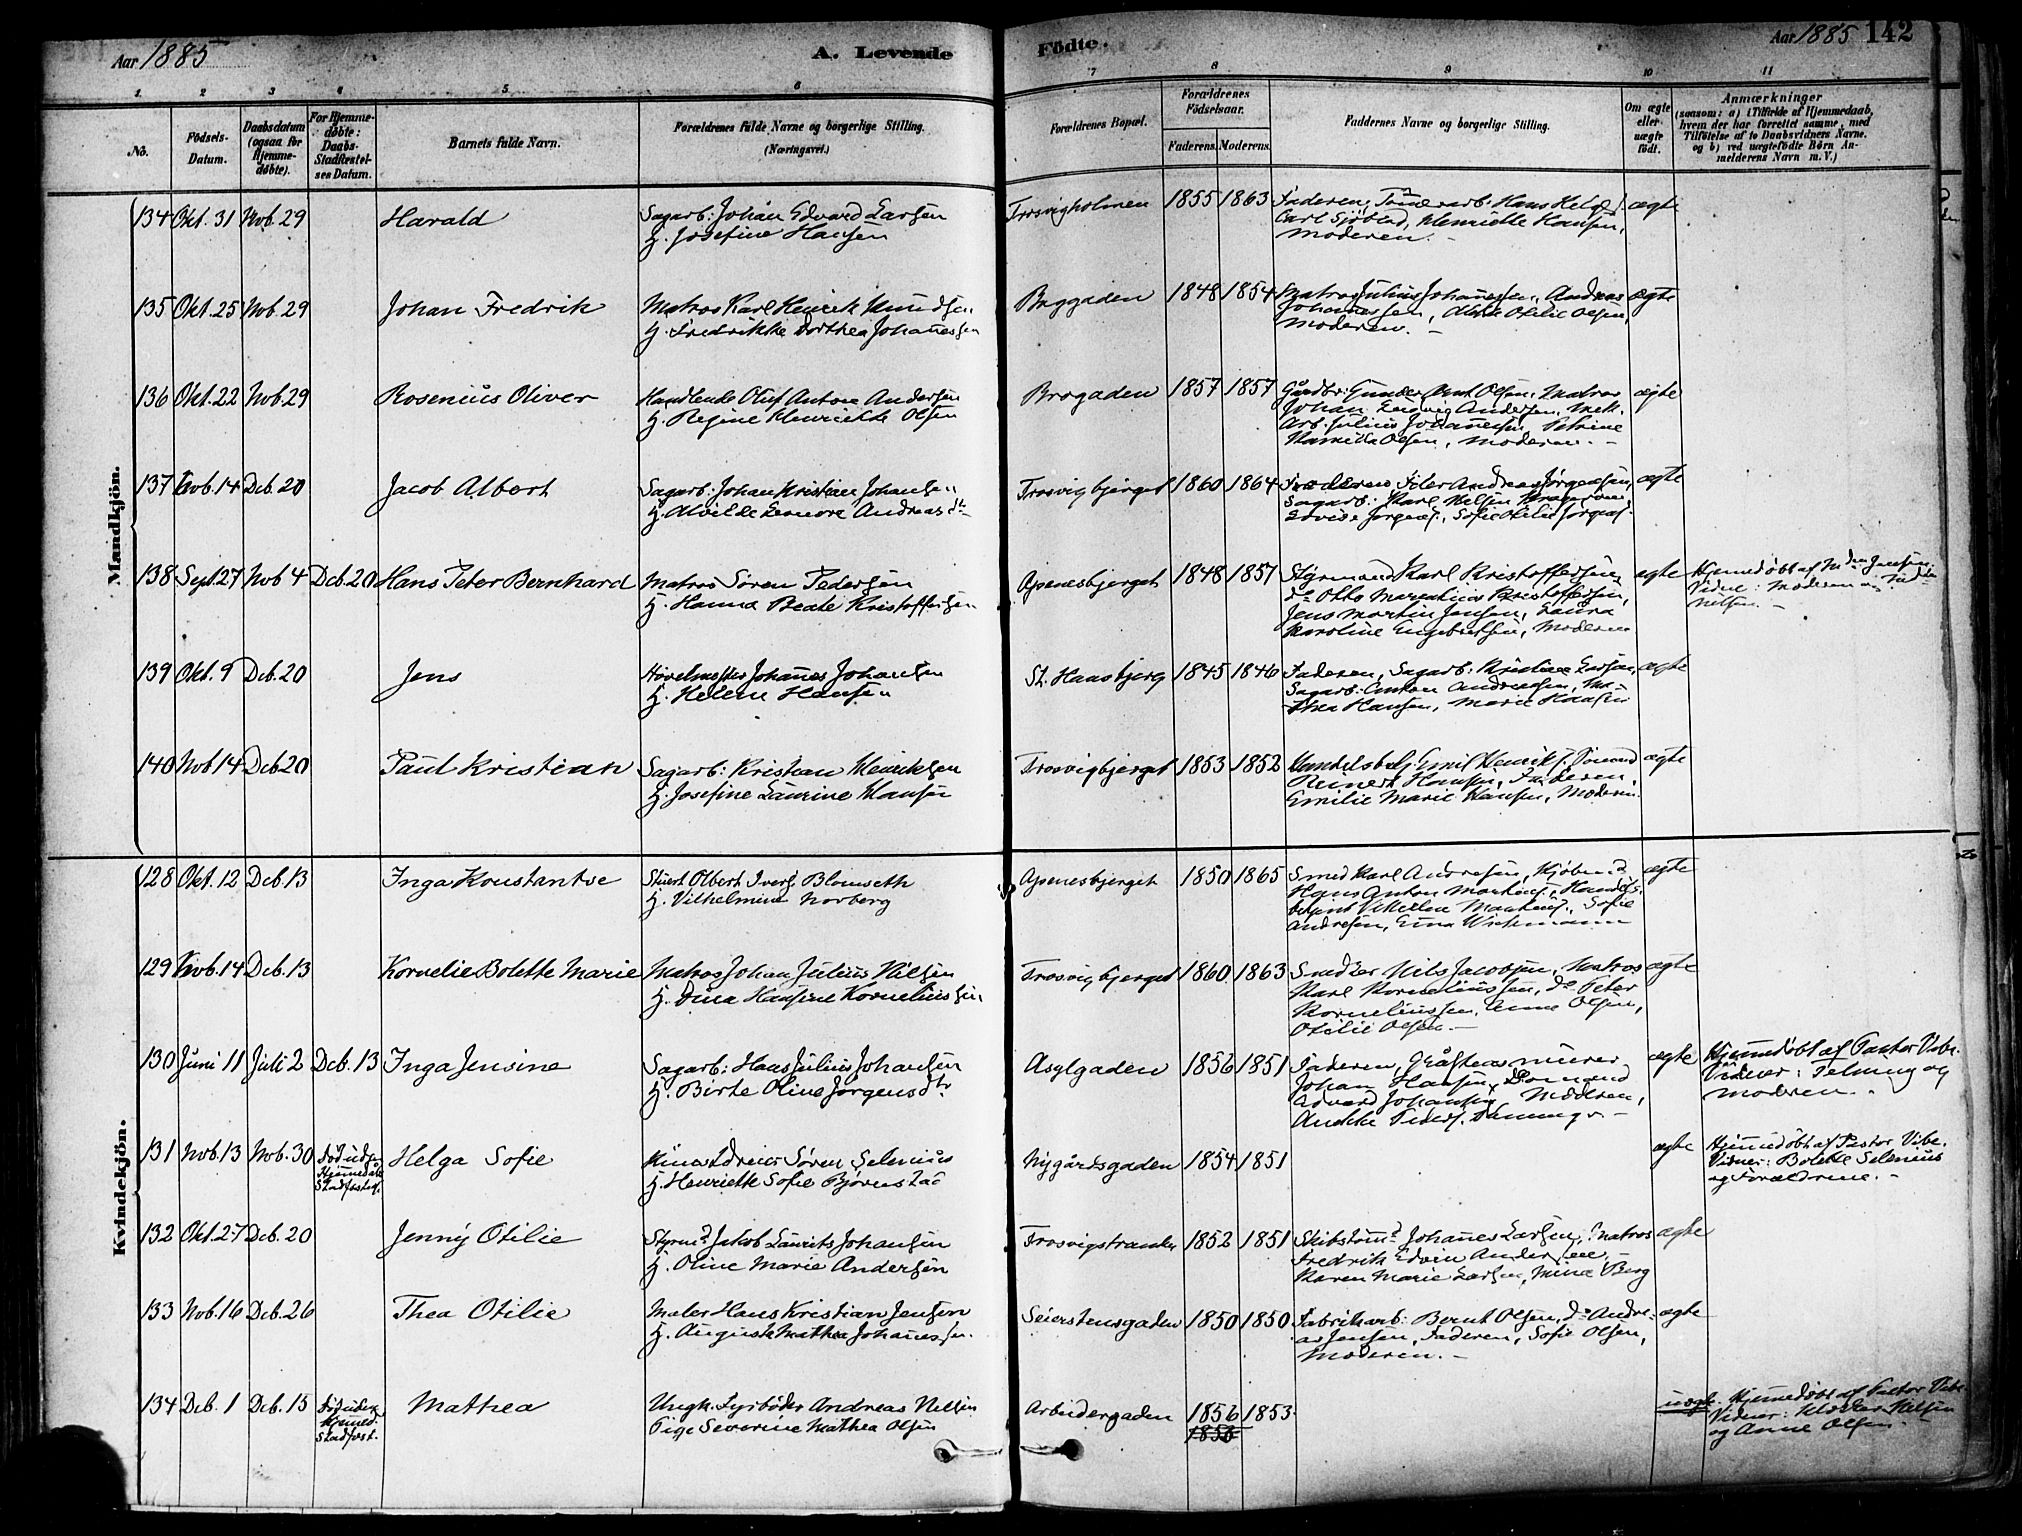 Aar 1885
A. Levende
Födte.
Aar 1885
142
1.
2
3
4
5
6
7
8
9
10
11
No.
Födsels-
Datum.
Daabsdatum
(ogsaa for
Hjemme-
døbte).
For Hjemme-
døbte:
Daabs-
Stadfæstel-
ses Datum.
Barnets fulde Navn.
Forældrenes fulde Navne og borgerlige Stilling.
(Næringsvei.)
Forældrenes Bopæl.
Forældrenes
Födselsaar.
Faderens.
Moderens.
Faddernes Navne og borgerlige Stilling.
Om ægte
eller
uægte
født.
Anmærkninger
(saasom: a) i Tilfælde af Hjemmedaab,
hvem der har forrettet samme, med
Tilföielse af to Daabsvidners Navne.
og b) ved uægtefödte Börn An-
melderens Navn m. V.)
Mandkjön.
134 Okt. 31 Nob. 29 Harald
Sagarb: Johan Edvard Larsen
H. Josefine Hansen
Trosvigholmen 1855 1863
Faderen, Hans Helg
Carl Sjöblad, Henriette Hansen,
Moderen. -
ægte
135 Okt. 25 Nob. 29 Johan Fredrik
Matros Karl Henrik
H. Fredrikke Dorthea Johanessen
Baggaden 1848 1854
Matros Julius Johanessen, Andreas
Johanessen, Otilie Olsen,
Moderen. -
ægte
136 Okt. 22 Nob. 29 Rosenius Oliver
Handlende Oluf Anton Andersen
H. Regine Henriette Olsen
Brogaden 1857 1857
Gunder Olsen, Matros
Johan Andersen, Mek.
Arb. Julius Johanessen,
Olsen, Moderen. -
ægte
137 Nob. 14 Deb. 20 Jacob Albert
Sagarb: Johan Kristian Johansen
H. Alvilde Andreasdtr
Trosvigbjerget 1860 1864
Faderen Andreas Jørgensen,
Sagarb: Karl Nilsen
Lovise Jørgens., Sofie Otilie Jørgens.
ægte
138 Sept. 27 Nob 4 Deb. 20 Hans Peter Bernhard
Matros Sören Pedersen
H. Hanna Beate Kristoffersen
Apenesbjerget 1848 1857
Styrmand Karl Kristoffersen,
do Otto Kristoffersen,
Jens Martin Jensen, Laura
Karoline Engebretsen, Moderen
ægte
Hjemedöbt af Jensen
Vidne: Moderen
Nilsen. -
139 Okt. 9 Deb. 20 Jens
Hövelmester Johanes Johansen
H. Helene Hansen
St. Hansbjerg 1845 1846
Faderen, Sagarb. Larsen,
Sagarb: Anton Andreasen, Ma-
thea Hansen, Marie Hansen
ægte
140 Nob 14 Deb 20 Paul Kristian
Sagarb: Kristian Henriksen
H. Josefine Laurine Hansen
Trosvigbjerget 1853 1852
Handelsb. Emil Henriks.
Reinert Hansen, Faderen,
Emilie Marie Hansen, Moderen.
ægte
Kvindekjön.
128 Okt. 12 Deb. 13 Inga Konstantse
Stuert Olbert Ivers. Blomseth
H. Vilhelmine Norberg
Apenesbjerget 1850 1865
Smed Karl Andresen, Kjöbmd
Hans Anton
Sofie
Andresen, Wichmann
ægte
129 Nob. 14 Deb. 13 Kornelie Bolette Marie
Matros Johan Julius Nilsen
H. Dina Hansine Korneliussen
Trosvigbjerget 1860 1863
Nils Jacobsen, Matros
Karl Korneliussen, do Peter
Korneliussen, Anne Olsen,
Otilie Olsen. -
ægte
130 Juni 11 Juli 2 Deb. 13 Inga Jensine
Sagarb: Hans Julius Johansen
H. Birte Oline Jørgensdtr
Asylgaden 1852 1851
Faderen, murer
Johan Hansen,
Edvard Johansen, Moderen,
ægte
Hjemedöbt af Pastor Vibe.
Vidner: og
Moderen.
131 Nob. 13 Nob. 30
Helga Sofie
Sören Selenius
H. Henriette Sofie Björnstad
Nygårdsgaden 1854 1851
ægte
Hjemedöbt af Pastor Vibe.
Vidner: Bolette Selenius
og Forældrene. -
132 Okt. 27 Deb. 20 Jenny Otilie
Styrmd Jakob Laurits Johansen
H. Oline Marie Andersen
Trosvigstranden 1852 1851
Johanes Larsen, Matros
Fredrik Edvin Andersen,
Karen Marie Larsen, Mina Berg
ægte
133 Nob. 16 Deb. 26 Thea Otilie
Maler Hans Kristian Jensen
H. Augusta Mathea Johanessen.
Seierstensgaden 1850 1850
Fabrikarb: Bernt Olsen, do Andre-
as Jensen, Faderen, Sofie Olsen,
Moderen. -
ægte
134 Deb. 1 Deb. 15
Mathea
Ungk. Fyrböder Andreas Nilsen
Pige Severine Mathea Olsen
Arbeidergaden 1856 1853.
uægte.
Hjemedöbt af Pastor Vibe
Vidner: Nilsen
og Anne Olsen.